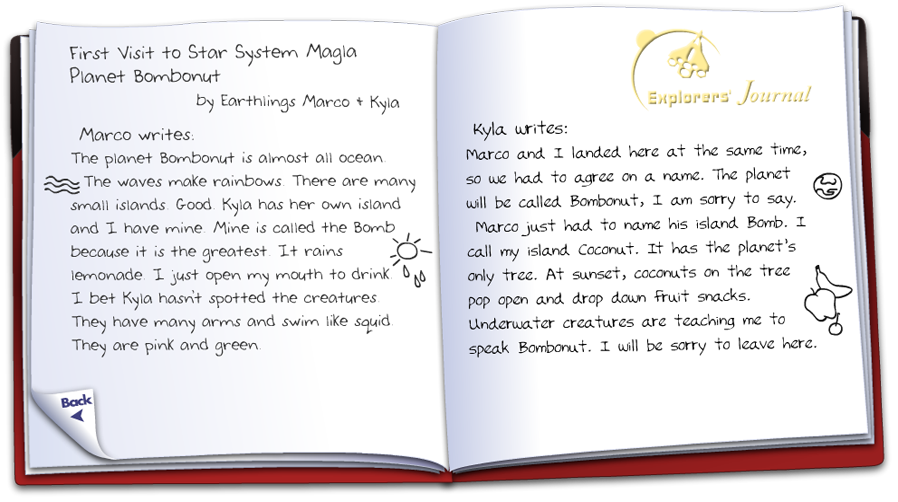 First Visit to Star System Magla
Planet Bombonut
by Earthlings Marco + Kyla
Marco writes:
The planet Bombonut is almost all ocean.
The waves make rainbows. There are many
small islands. Good. Kyla has her own island
and I have mine. Mine is called the Bomb
because it is the greatest. It rains
lemonade. I just open my mouth to drink.
I bet Kyla hasn't spotted the creatures.
They have many arms and swim like squid.
They are pink and green.
Back
Explorers' Journal
Kyla writes:
Marco and I landed here at the same time,
so we had to agree on a name. The planet
will be called Bombonut, I am sorry to say.
Marco just had to name his island Bomb. I
call my island Coconut. It has the planet's
only tree. At sunset, coconuts on the tree
pop open and drop down fruit snacks.
Underwater creatures are teaching me to
speak Bombonut. I will be sorry to leave here.